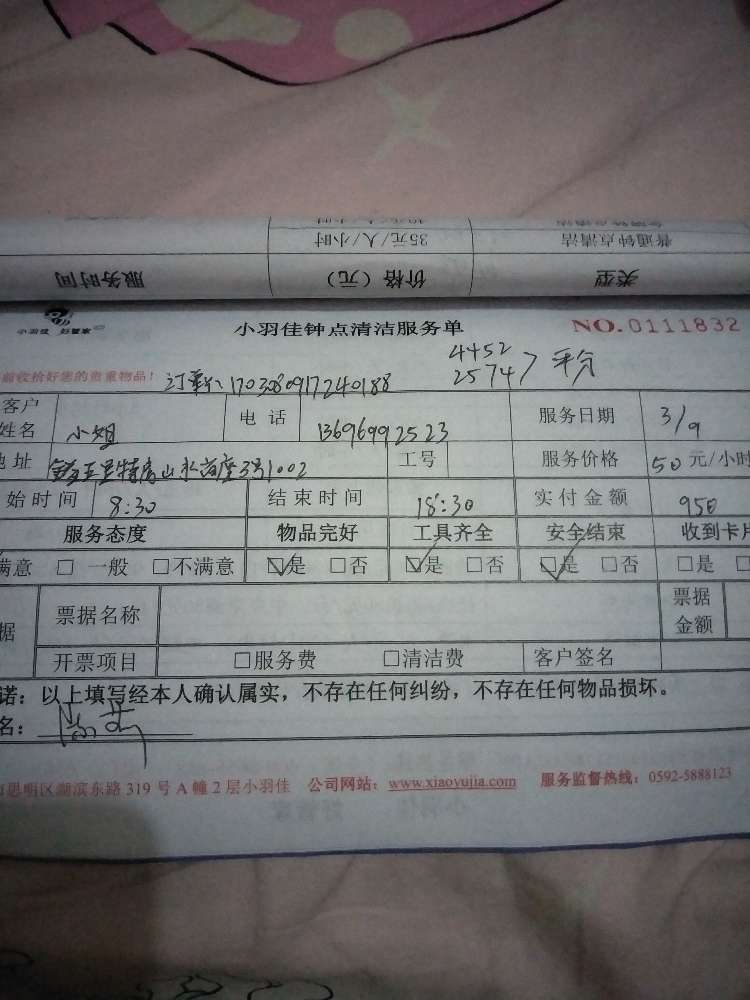 普通钟点清洁 35元/人/小时
类型 价格（元） 服务时间
小羽佳 好管家
小羽佳钟点清洁服务单 NO.0111832
前收拾好您的贵重物品！ 4452
订单: 1703080917240188 25747 平分
客户姓名 小姐 电话 13696992523 服务日期 3/9
地址 山水 座3号1002 工号 服务价格 50元/小时
始时间 8:30 结束时间 18:30 实付金额 950
服务态度 物品完好 工具齐全 安全结束 收到卡片
满意 □ 一般 □不满意 ☑是 □否 ☑是 □否 ☑是 □否 □是 □
据 票据名称 票据金额
开票项目 □服务费 □清洁费 客户签名
诺：以上填写经本人确认属实，不存在任何纠纷，不存在任何物品损坏。
名：
思明区湖滨东路 319 号 A 幢 2 层小羽佳 公司网站：www.xiaoyujia.com 服务监督热线：0592-5888123